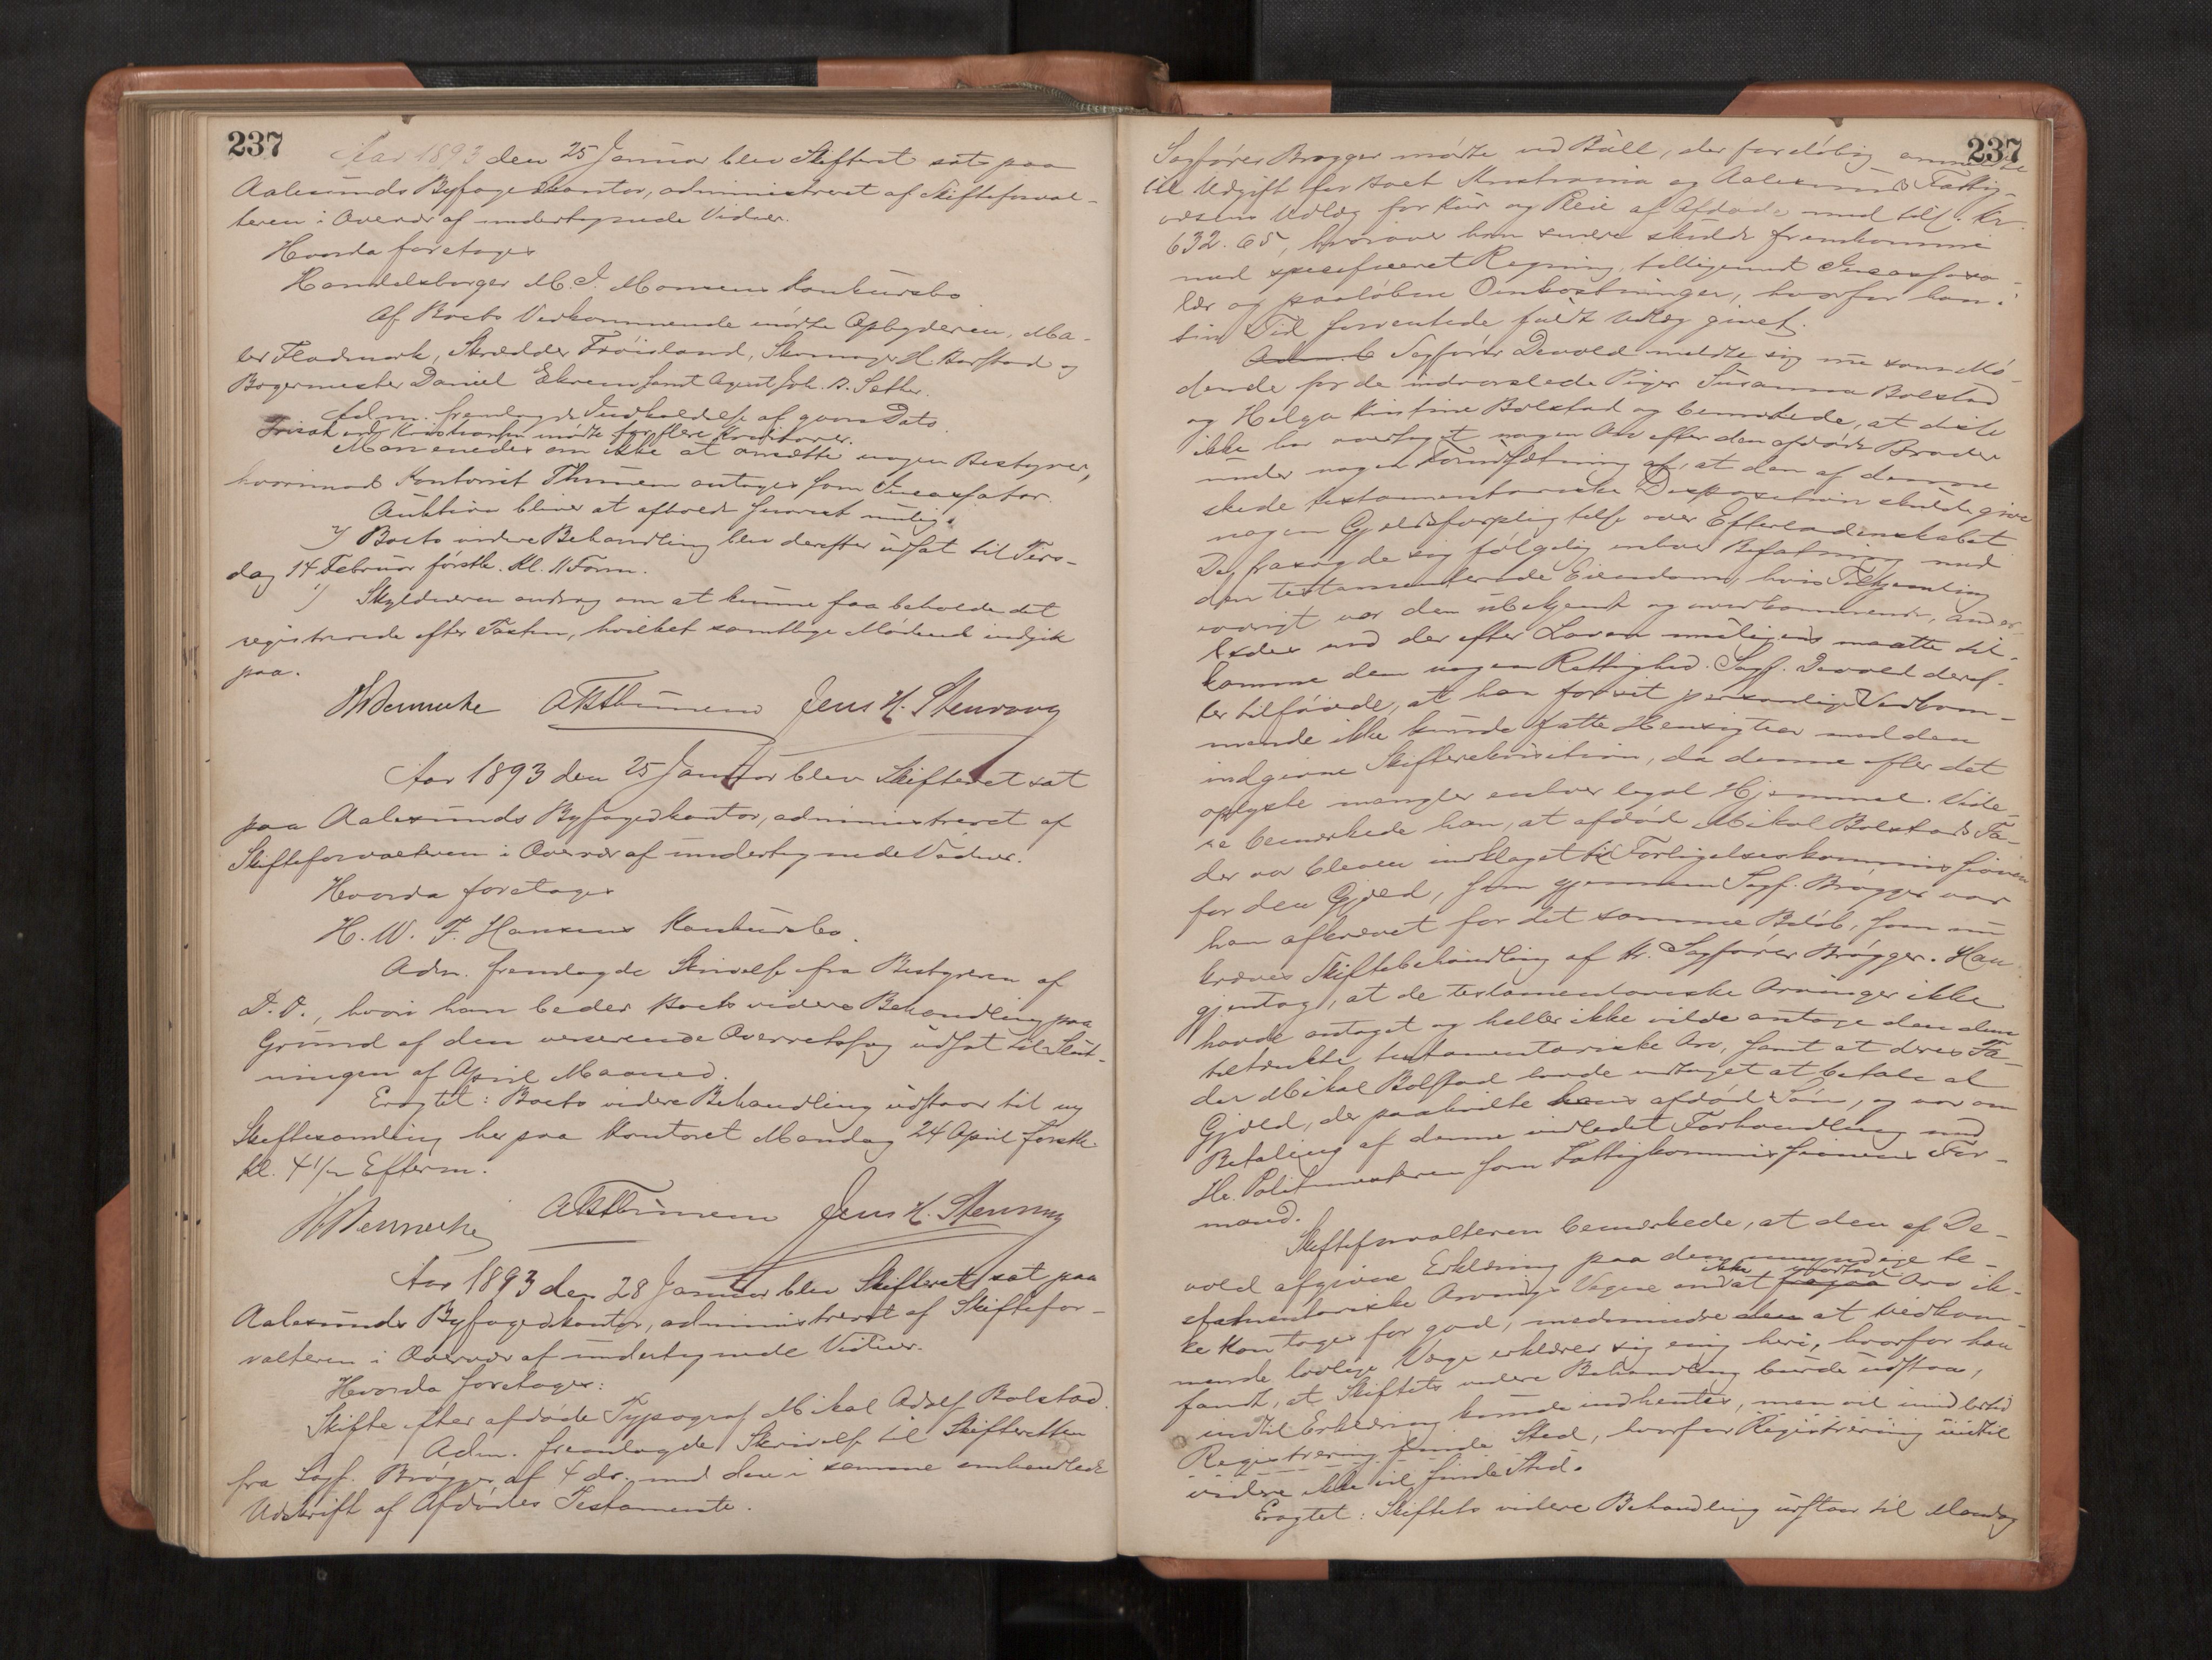 237
Aar 1893 den 25 Januar blev Skifteret sat paa
Aalesunds Byfogedkontor, administreret af Skifteforval-
teren i Overvær af undertegnede Vidner.
Hvorda foretoges
Handelsborger M. J. Monsens Konkursbo.
Af Boets Vedkommende mødte Opbyderen, Ma-
ler Fladmark, Skrædder Frøisland, Skomager H. Harstad og
Bagermester Daniel Ekrem samt Agent Joh. A. Sætter.
Adm. fremlagde Indkaldelse af gaars Dato.
Frisak ved Kristiansen mødte for flere Kreditorer.
Man enedes om ikke at ansætte nogen Bestyrer,
hvorimod Kontorist Thunem antages som Incassator.
Auktion bliver at afholde snarest mulig.
2) Boets videre Behandling blev derefter udsat til Tirs-
dag 14 Februar førstk. Kl. 11 Form.
1) Skyldneren androg om at kunne faa beholde det
registrerede efter Taxten, hvilket samtlige Mødende indgik
paa.
WDennecke AKThunem Jens H. Stenvaag
Aar 1893 den 25 Januar blev Skifteret sat
paa Aalesunds Byfogedkontor, administreret af
Skifteforvalteren i Overvær af undertegnede Vidner.
Hvorda foretoges
H. W. F. Hansens Konkursbo.
Adm. fremlagde Skrivelse fra Bestyreren af
D. D., hvori han beder Boets videre Behandling paa
Grund af den verserende Overretssag udsat til Slut-
ningen af April Maaned.
Eragtet: Boets videre Behandling udstaar til ny
Skiftesamling her paa Kontoret Mandag 24 April førstk.
Kl. 4 1/2 Efterm.
WDennecke AKThunem Jens H. Stenvaag
Aar 1893 den 28 Januar blev Skifteret sat paa
Aalesunds Byfogedkontor, administreret af Skiftefor-
valteren i Overvær af undertegnede Vidner.
Hvorda foretoges:
Skifte efter afdøde Typograf Mikal Adolf Bolstad.
Adm. fremlagde Skrivelse til Skifteretten
fra Sagf. Brøgger af 4 ds. med den i samme omhandlede
Udskrift af Afdødes Testamente.
237
Sagfører Brøgger mødte ved Bull, der foreløbig anmeldte
til Udgift for Boet Kristiania og Aalesunds Fattig-
væsens Udlæg for Kur og Pleie af Afdøde med tils. Kr.
632.65, hvorover han senere skulde fremkomme
med specificeret Regning, tilligemed Incassosa-
lær og paaløbne Omkostninger, hvorfor han i
sin Tid forventede fuldt Udlæg givet.
Sagfører Devold meldte sig nu som Mø-
dende for de indvarslede Piger Susanna Bolstad
og Helga Kristine Bolstad og bemærkede, at disse
ikke har overtaget nogen Arv efter den afdøde Broder
under nogen Forudsætning af, at den af denne
skede testamentariske Disposition skulde give
nogen Gjældsforpligtelse over Efterladenskabet.
De frasagde sig følgelig enhver Befatning med
den testamenterede Eiendom, hvis Tilhjemling
iøvrigt var dem ubekjendt og uvedkommende, ander-
ledes end der efter Loven muligens maatte til-
komme dem nogen Rettighed. Sagf. Devold deref-
ter tilføiede, at han for sit personlige Vedkom-
mende ikke kunde fatte Hensigten med den
indgivne Skifterekvisition, da denne efter det
oplyste mangler enhver legal Hjemmel. Vide-
re bemærkede han, at afdøde Mikal Bolstads Fa-
der var bleven indklaget til Forligelseskommissionen
for den Gjæld, som gjennem Sagf. Brøgger var
han afkrævet for det samme Beløb, som nu
kræves Skiftebehandling af Hr. Sagfører Brøgger. Han
gjentog, at de testamentariske Arvinger ikke
havde antaget og heller ikke vilde antage den dem
tiltænkte testamentariske Arv, samt at deres Fa-
der Mikal Bolstad havde vedtaget at betale al
Gjæld, der paahvilte hans afdøde Søn, og var om
Betaling af denne indledet Forhandling med
Hr. Politimesteren som Fattigkommissionens For-
mand.
Skifteforvalteren bemærkede, at den af De-
vold afgivne Erklæring paa den umyndige te-
stamentariske Arvings Vegne om ikke at overtage Arv ik-
ke kan tages for god, medmindre at Vedkom-
mende lovlige Værge erklærer sig enig heri, hvorfor han
fandt, at Skiftets videre Behandling burde udstaa,
indtil Erklæring kunde indhentes, men vil imidlertid
Registrering finde Sted, hvorfor Registrering indtil
videre ikke vil finde Sted.
Eragtet: Skiftets videre Behandling udstaar til Mandag